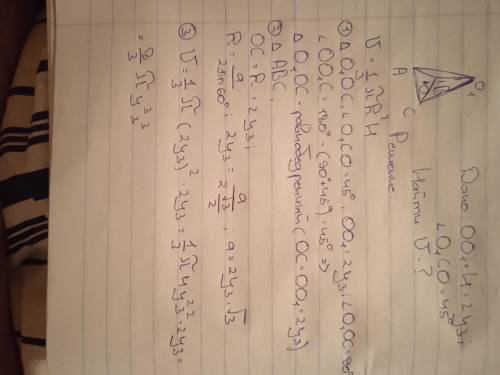 Дано: OO₁=H=2y₃;
∠O₁CO=45°
Найти V-?
O₁
A
C
O
Решение
V=1/3 πR²H
① ΔO₁OC; ∠O₁CO=45°; OO₁=2y₃; ∠O₁OC=90°
∠OO₁C=180°-(90°+45°)=45° ⇒
ΔO₁OC - равнобедренный (OC=OO₁=2y₃)
② ΔABC,
OC=R=2y₃;
R=a/2sin60°; 2y₃=a/(2·√3/2); a=2y₃·√3
③ V=1/3 π(2y₃)²·2y₃=1/3 π4y₃²·2y₃=
=8/3 πy₃³